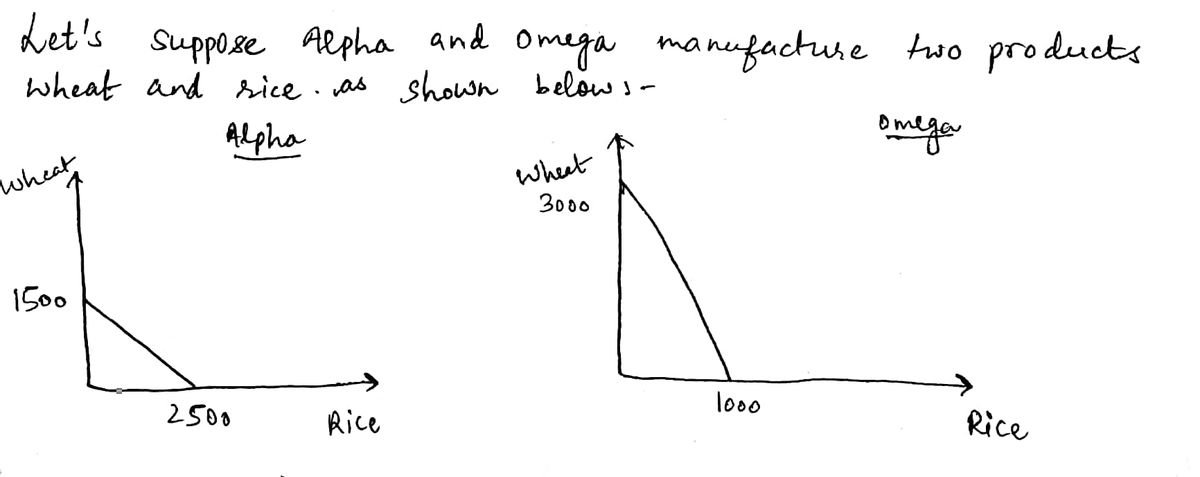 Let's suppose Alpha and Omega manufacture two products
wheat and rice. as shown below:-
Alpha
Omega
Wheat
1500
2500
Rice
Wheat
3000
1000
Rice